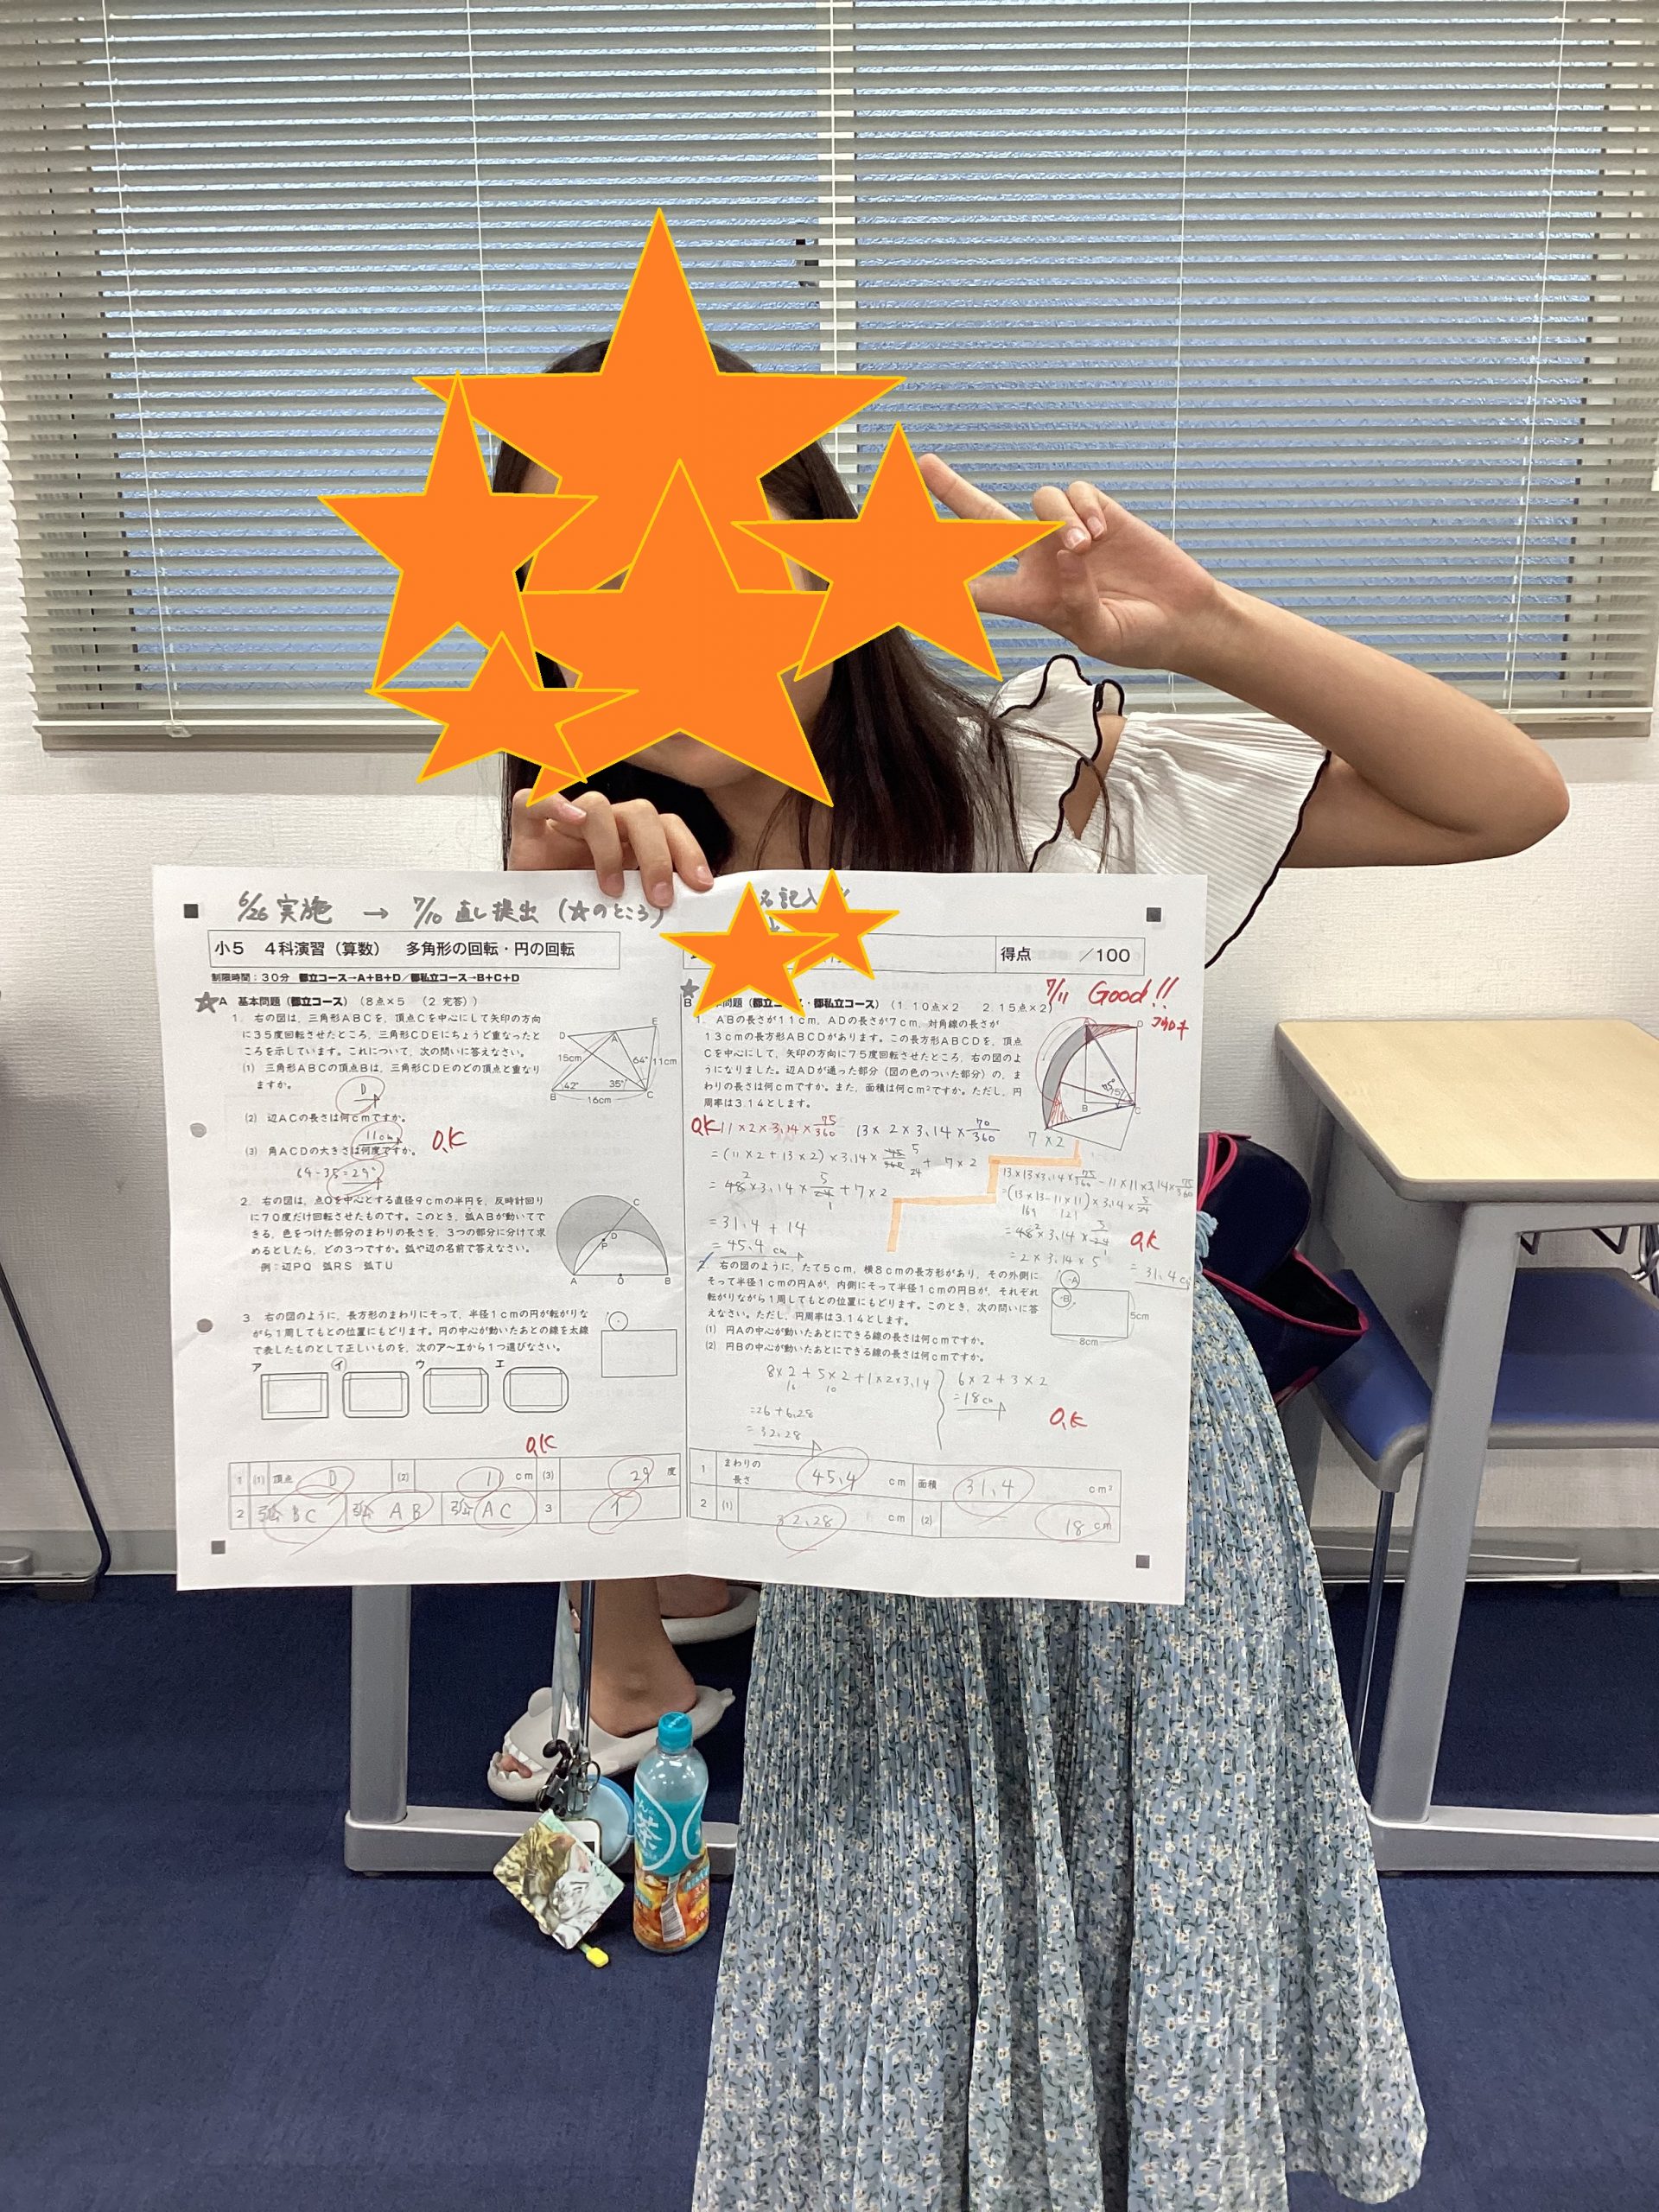 6/26 実施 → 7/10 直し提出 (☆のところ)
名記入
小5 4科演習(算数) 多角形の回転・円の回転
得点 /100
制限時間:30分 都立コース→A+B+D/都私立コース→B+C+D
A 基本問題(都立コース) (8点×5 (2 完答))
1. 右の図は、三角形ABCを、頂点Cを中心にして矢印の方向
に35度回転させたところ、三角形CDEにちょうど重なったと
ころを示しています。これについて、次の問いに答えなさい。
(1) 三角形ABCの頂点Bは、三角形CDEのどの頂点と重なり
ますか。
D
(2) 辺ACの長さは何cmですか。
11cm
(3) 角ACDの大きさは何度ですか。
O.K
64-35=29°
D E A 15cm 64° 11cm 42° 35° B 16cm C
2. 右の図は、点Oを中心とする直径9cmの半円を、反時計回り
に70度だけ回転させたものです。このとき、弧ABが動いてで
きる、色をつけた部分のまわりの長さを、3つの部分に分けて求
めるとしたら、どの3つですか。弧や辺の名前で答えなさい。
例:辺PQ 弧RS 弧TU
C D P A O B
3. 右の図のように、長方形のまわりにそって、半径1cmの円が転がりな
がら1周してもとの位置にもどります。円の中心が動いたあとの線を太線
で表したものとして正しいものを、次のア~エから1つ選びなさい。
ア イ ウ エ
O.K
1 (1) 頂点 D (2) 11 cm (3) 29 度
2 弧 BC 弧 AB 弧 AC 3 イ
7/11 Good!!
B 問題(都立コース・都私立コース) (1.10点×2 2.15点×2)
1. ABの長さが11cm、ADの長さが7cm、対角線の長さが
13cmの長方形ABCDがあります。この長方形ABCDを、頂点
Cを中心にして、矢印の方向に75度回転させたところ、右の図のよ
うになりました。辺ADが通った部分(図の色のついた部分)の、ま
わりの長さは何cmですか。また、面積は何cm²ですか。ただし、円
周率は3.14とします。
A D B C 75°
7×2
O.K 11×2×3.14×75/360 13×2×3.14×70/360
=(11×2+13×2)×3.14×5/24+7×2
=48×3.14×5/24+7×2
=31.4+14
=45.4 cm
13×13×3.14×75/360-11×11×3.14×75/360
=(13×13-11×11)×3.14×5/24
169 121
=48×3.14×5/24
=2×3.14×5
=31.4
O.K
2. 右の図のように、たて5cm、横8cmの長方形があり、その外側に
そって半径1cmの円Aが、内側にそって半径1cmの円Bが、それぞれ
転がりながら1周してもとの位置にもどります。このとき、次の問いに答
えなさい。ただし、円周率は3.14とします。
(1) 円Aの中心が動いたあとにできる線の長さは何cmですか。
(2) 円Bの中心が動いたあとにできる線の長さは何cmですか。
A B 5cm 8cm
8×2+5×2+1×2×3.14
16 10
=26+6.28
=32.28
6×2+3×2
=18cm
O.K
1 まわりの長さ 45.4 cm 面積 31.4 cm²
2 (1) 32.28 cm (2) 18 cm
茶